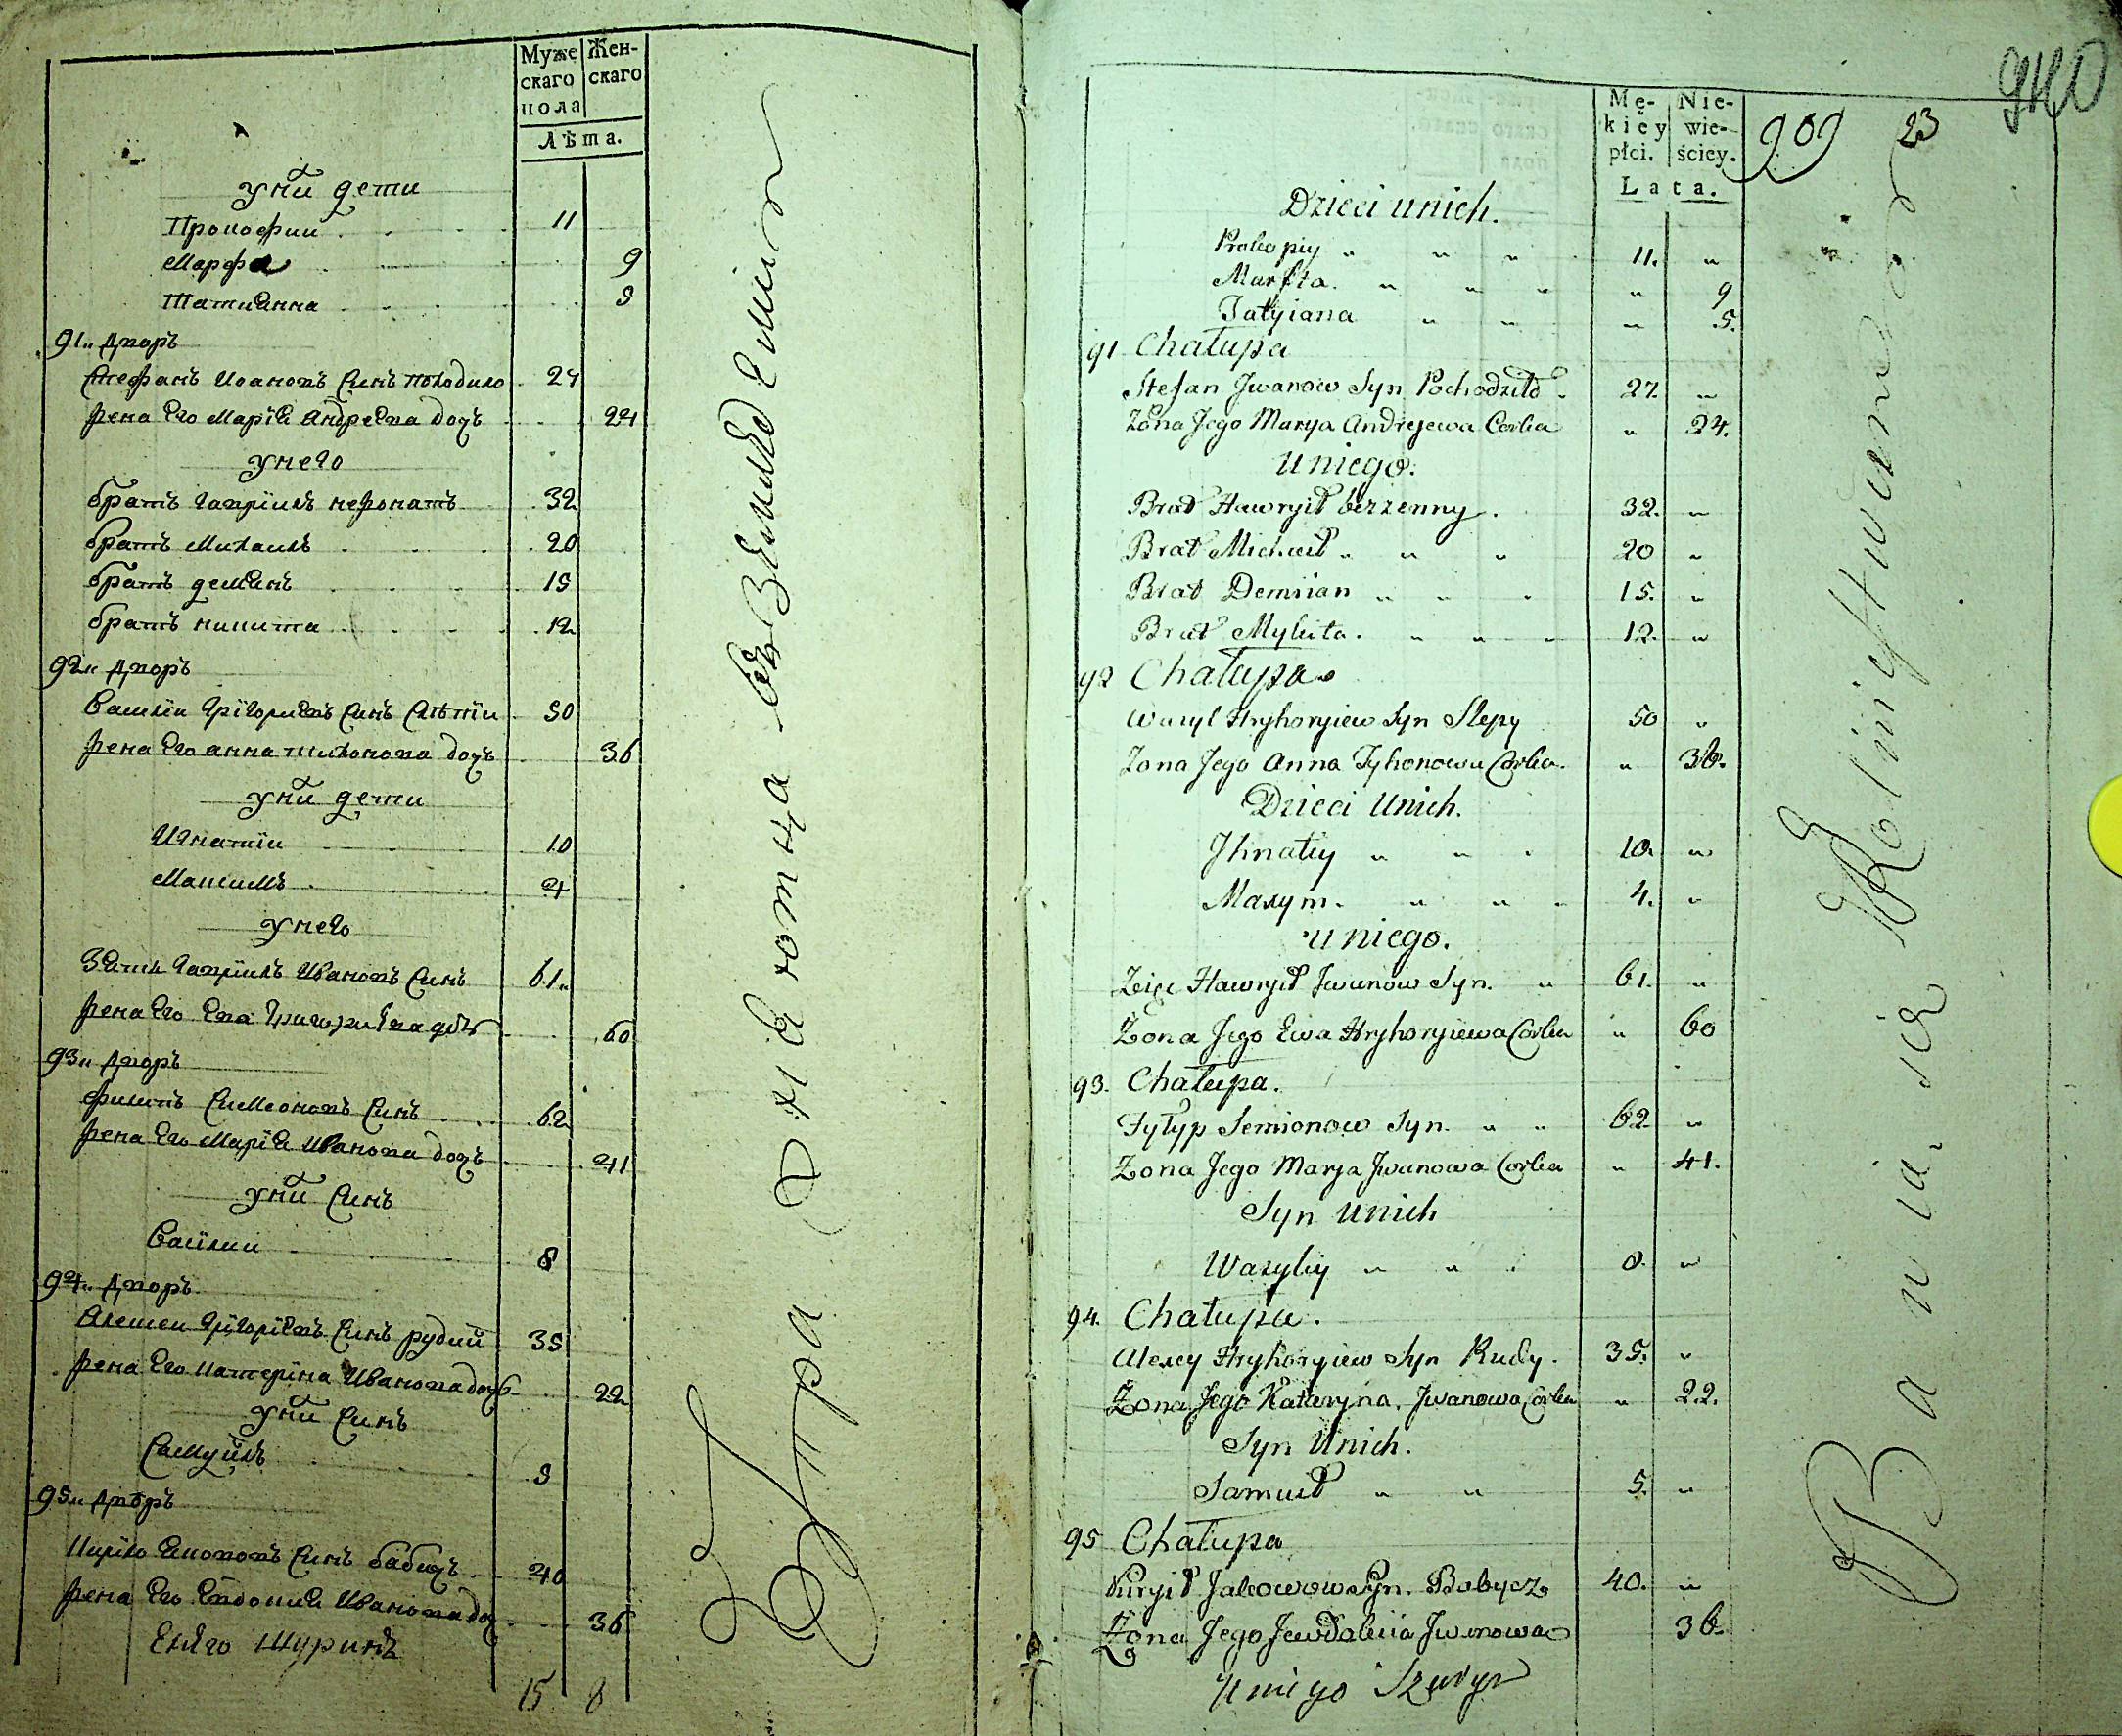 Муже
скаго
пола
Жен-
скаго
Лѣта.
уни дети
Прокофии 11
Марфа 9
Татианна 5
91 дворъ
Стефанъ Ивановъ синъ Походило 27
жена его Мариа Андреева дочъ 24
унего
братъ Гавріилъ нежонатъ 32
братъ Михаилъ 20
братъ Демианъ 15
братъ Никита 12
92 дворъ
Василіи Григориевъ синъ Слѣпіи 50
жена его Анна Тихонова дочъ 36
уни дети
Игнатіи 10
Максимъ 4
унего
Зять Гавріилъ Ивановъ синъ 61
жена его Ева Григориева дочъ 60
93 дворъ
Филипъ Симеоновъ синъ 62
жена его Мариа Иванова дочъ 41
уни синъ
Василии 8
94 дворъ
Алексеи Григоріевъ синъ рудий 35
жена его Катеріна Иванова дочъ 22
уни синъ
Самуилъ 5
95 дворъ
Кирило Якововъ синъ бабичъ 40
жена его Евдокиа Иванова доч 36
Шуринъ
15 8
Mę-
kiey
płci.
Nie-
wie-
ściey.
Lata.
909
23
940
Dzieci unich.
Prokopiy " " " 11. "
Marfta. " " " " 9
Tatyiana " " " 5.
91 Chałupa
Stefan Jwanow Syn Pochodziło 27. "
Żona Jego Marya Andrejewa Corka " 24.
Uniego.
Brat Hawrył bezzenny. 32. "
Brat Michał " " " 20 "
Brat Demiian " " " 15. "
Brat Mykita. " " " 12. "
92 Chałupa
Wasyl Hryhoryiew Syn Slepy 50 "
Zona Jego Anna Tyhonowa Corka. " 36.
Dzieci Unich.
Jhnatiy " " " 10. "
Maxym. " " " 4. "
Uniego.
Zięc Hawrył Jwanow Syn. " 61. "
Żona Jego Ewa Hryhoryiewa Corka " 60
93. Chałupa.
Fyłyp Semionow Syn. " " 62 "
Żona Jego Marya Jwanowa Corka " 41.
Syn Unich
Wasyliy " " " 8. "
94. Chałupa.
Alexey Hryhoryiew Syn Rudy. 35. "
Żona Jego Kateryna Jwanowa Corka " 22.
Syn Unich.
Samuił " " 5. "
95 Chałupa
Kuryił Jakowow Syn. Babycz 40. "
Żona Jego Jewdokiia Jwanowa 36.
Uniego Szuryn